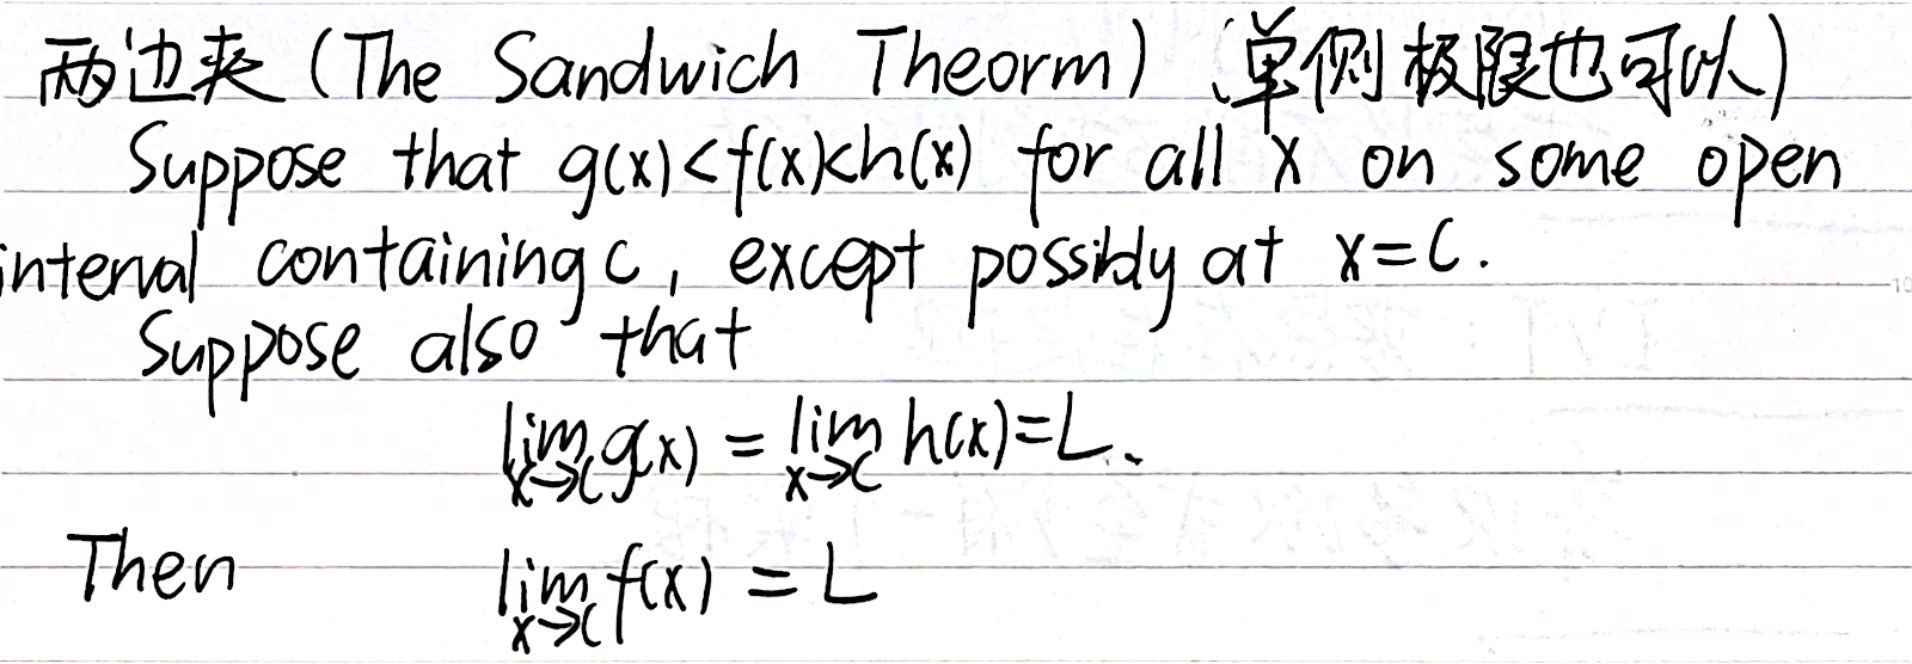 两边夹 (The Sandwich Theorm) (单侧极限也可以)
Suppose that g(x)<f(x)<h(x) for all x on some open
interval containing c, except possibly at x=c.
Suppose also that
lim x→c g(x) = lim x→c h(x)=L.
Then lim x→c f(x) = L